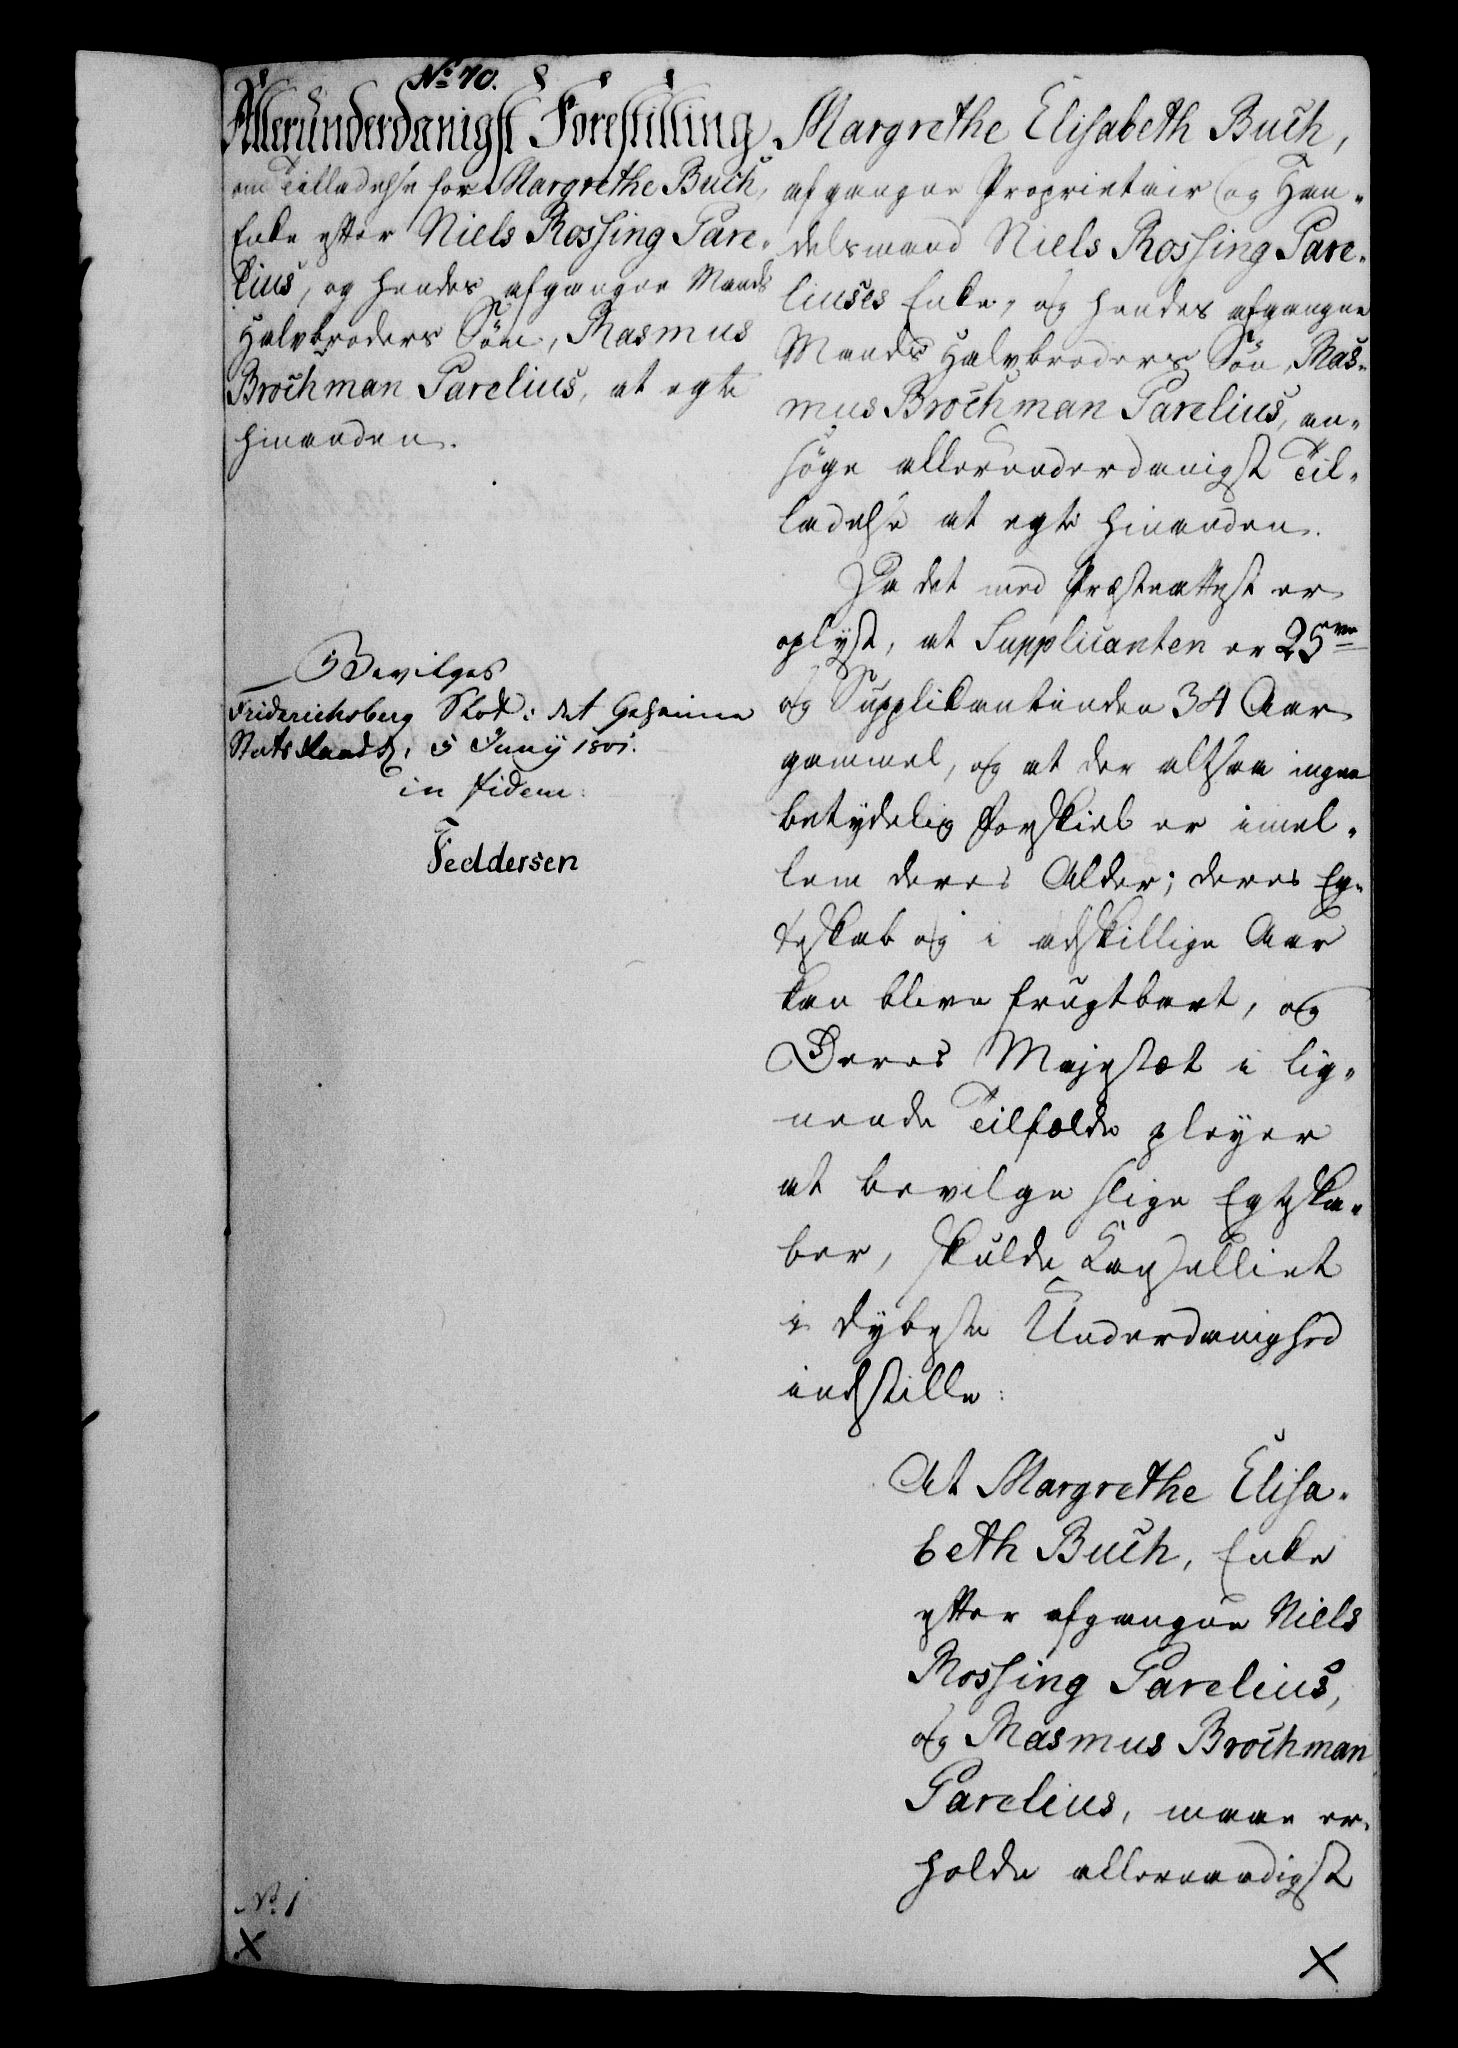 No 70.
Allerunderdanigst Forestilling
om Tilladelse for Margrethe Buch,
Enke efter Niels Rossing Pare-
lius, og hendes afgangne Mands
Halvbroders Søn, Rasmus
Brochman Parelius, at egte
hinanden.
Bevilges
Friderichsberg Slot i det Geheime
Stats Raad d. 5 Junij 1801.
in fidem:
Feddersen
No 1
X
Margrethe Elisabeth Buch,
afgangne Proprietair og Han-
delsmand Niels Rossing Pare-
liuses Enke, og hendes afgangne
Mands Halvbroders Søn, Ras-
mus Brochman Parelius, an-
søge allerunderdanigst Til-
ladelse at egte hinanden.
Da det med Præsteattest er
oplyst, at Supplicanten er 25ve
og Supplikantinden 34 Aar
gammel, og at der altsaa ingen
betydelig Forskiel er imel-
lem deres Alder; deres Eg-
teskab og i adskillige Aar
kan blive frugtbart, og
Deres Majestæt i lig-
nende Tilfælde pleyer
at bevilge slige Egteska-
ber, skulde Cancelliet
i dybeste Underdanighed
indstille:
At Margrethe Elisa-
beth Buch, Enke
efter afgangne Niels
Rossing Parelius,
og Rasmus Brochman
Parelius, maae er-
holde allernaadigst
X